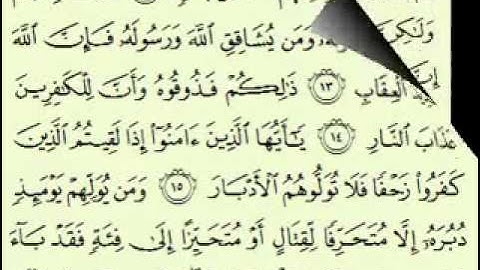 وَمَن يُشَاقِقِ اللَّهَ وَرَسُولَهُ فَإِنَّ اللَّهَ
الْعِقَابِ ١٣ ذَٰلِكُمْ فَذُوقُوهُ وَأَنَّ لِلْكَافِرِينَ
عَذَابَ النَّارِ ١٤ يَا أَيُّهَا الَّذِينَ ءَامَنُوا إِذَا لَقِيتُمُ الَّذِينَ
كَفَرُوا زَحْفًا فَلَا تُوَلُّوهُمُ الْأَدْبَارَ ١٥ وَمَن يُوَلِّهِمْ يَوْمَئِذٍ
دُبُرَهُ إِلَّا مُتَحَرِّفًا لِّقِتَالٍ أَوْ مُتَحَيِّزًا إِلَىٰ فِئَةٍ فَقَدْ بَاءَ